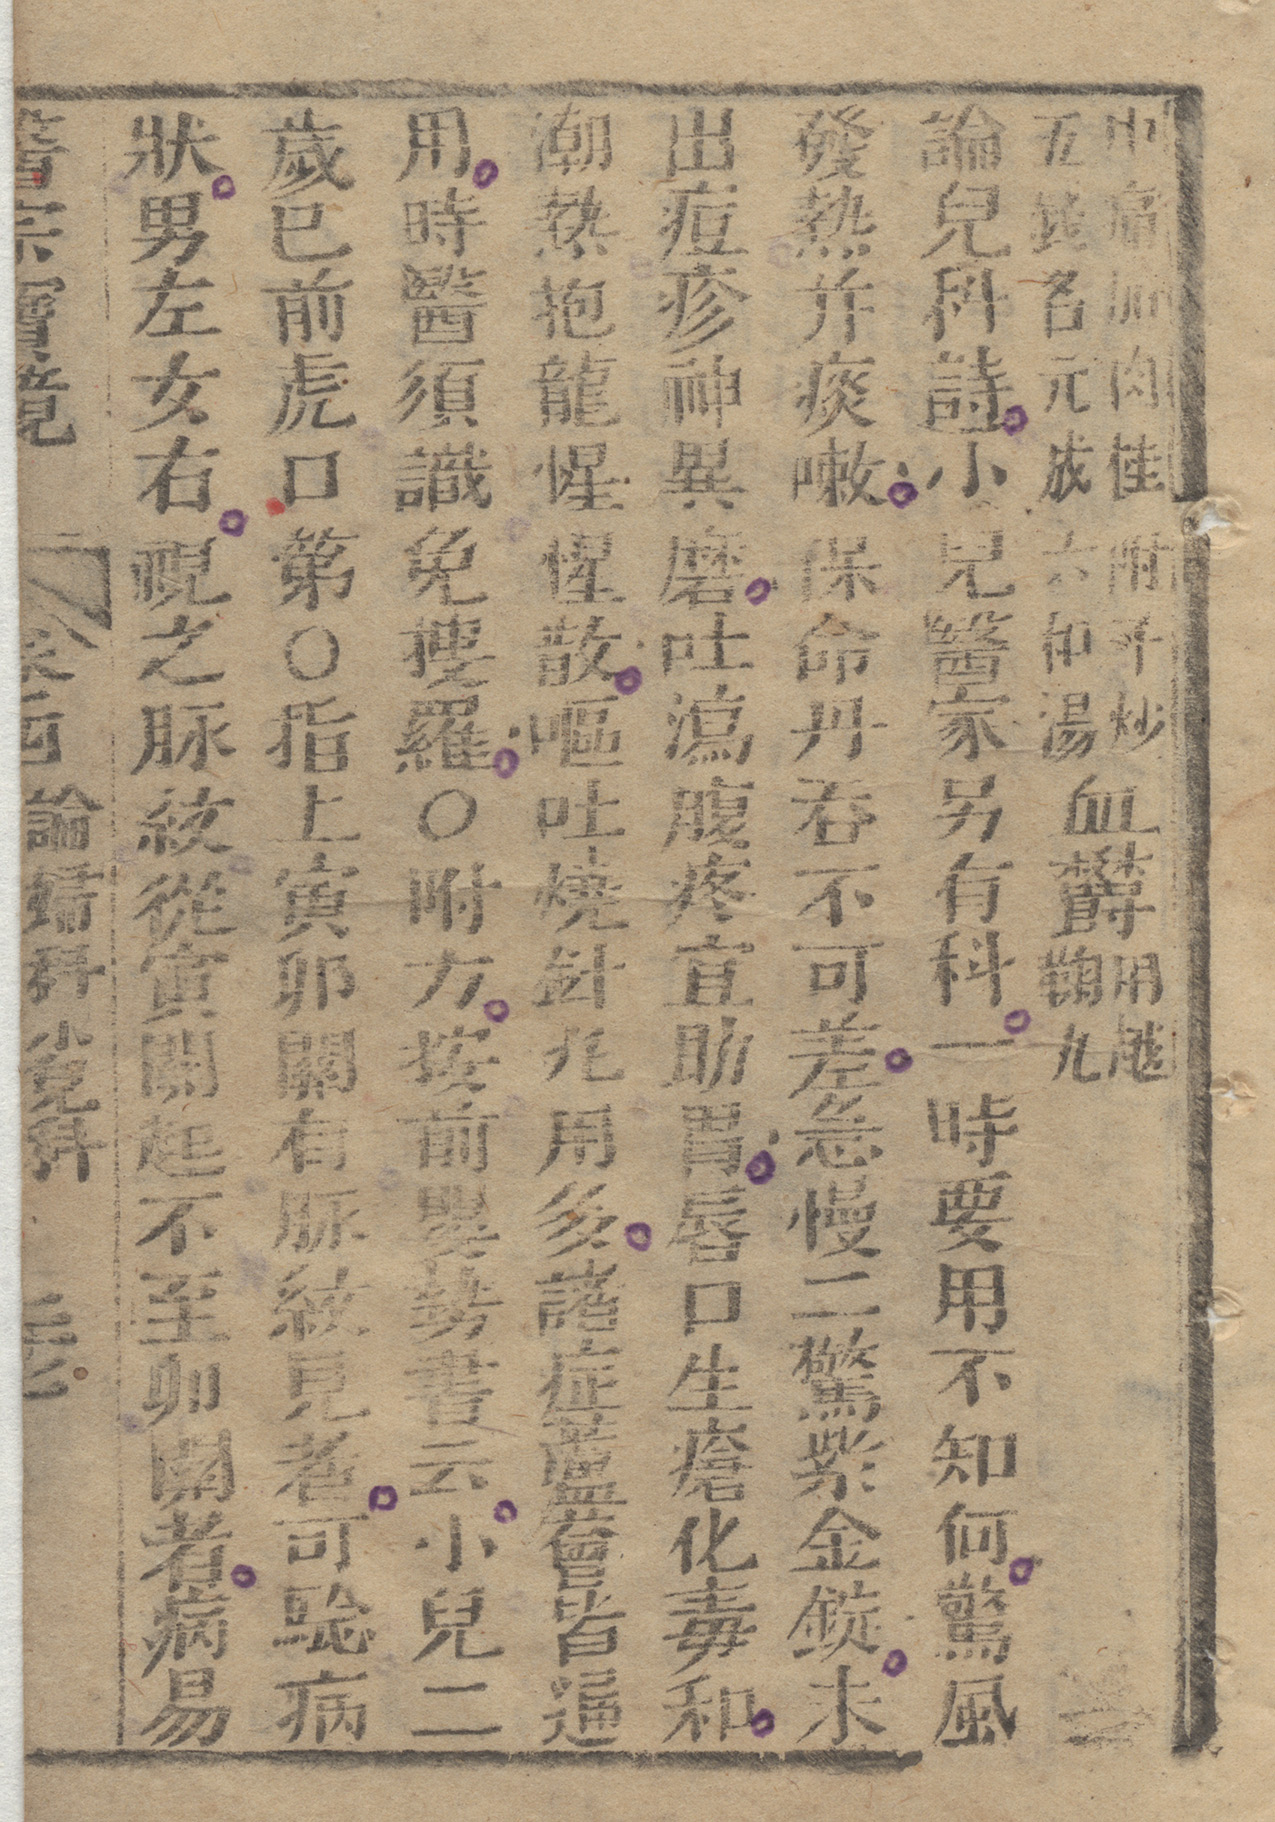 痛 肉桂附子炒
五 名元 六和湯
血鬱用越
鞠丸
論兒科詩小兒醫家另有科一時要用不知何驚風
發熱并痰嗽保命丹吞不可差急慢二驚紫金錠未
出痘疹神異磨吐瀉腹疼宜助胃唇口生瘡化毒和
潮熱抱龍惺惺散嘔吐燒針丸用多諸症蘆薈皆逼
用時醫須識免搜羅○附方按前 書云小兒二
歲已前虎口第○指上寅卯關有脈紋見者可騐病
狀男左女右視之脈紋從寅關起不至卯關者病易
醫宗寶鏡 卷四 論婦科兒科